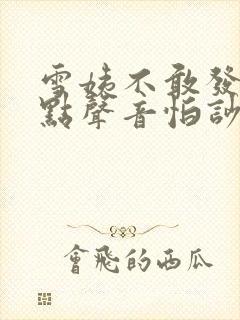 雪姨不敢發
點聲音怕訬
會飛的西瓜